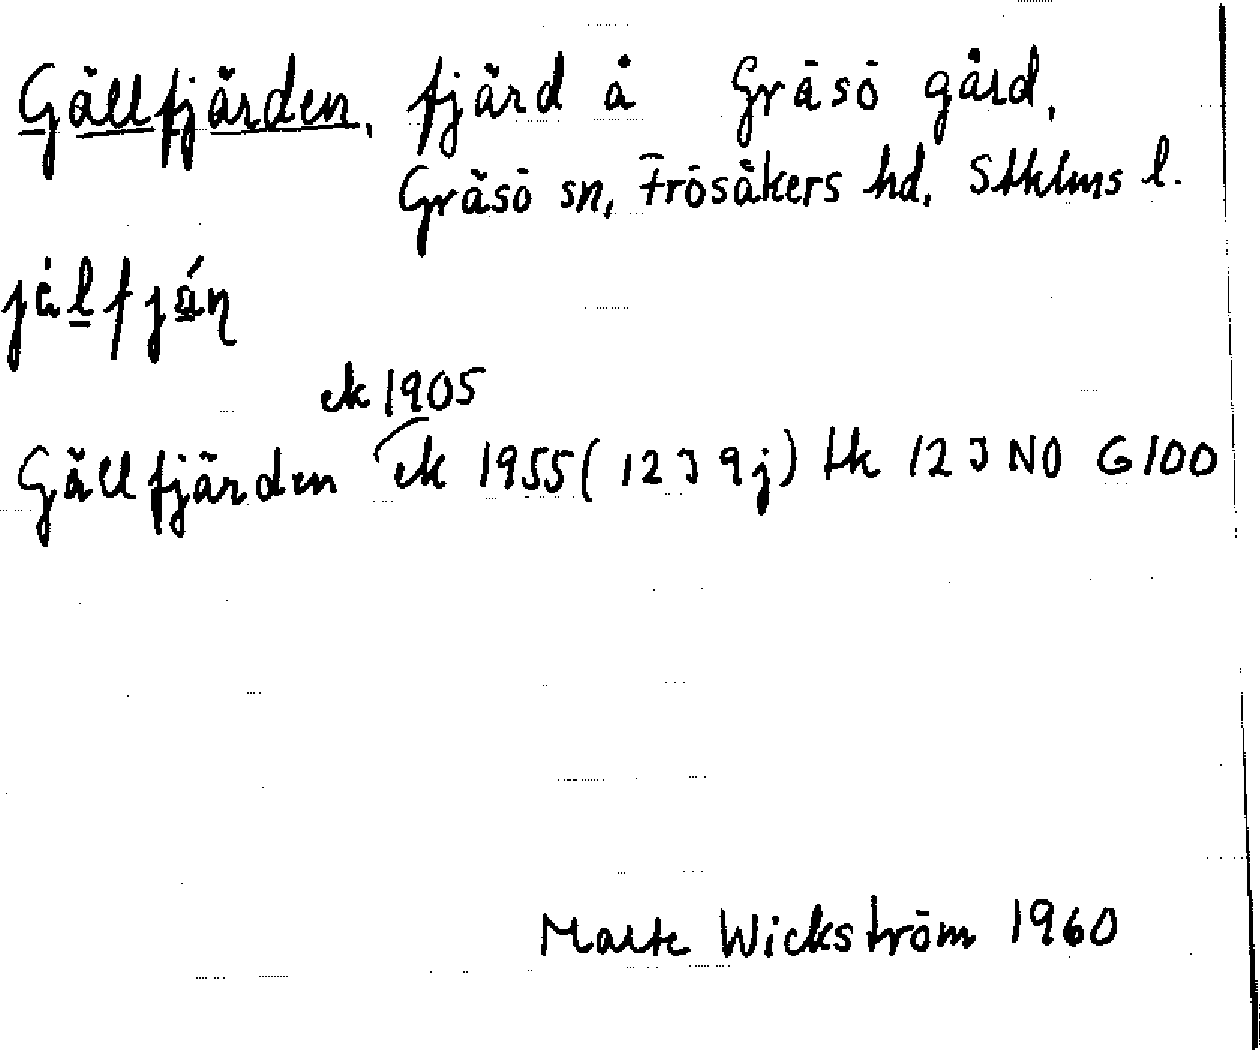 Gällfjärden, fjärd å Gräsö gård,
Gräsö sn, Frösåkers hd, Sthlms l.
ek 1905
Gällfjärden ek 1955 (12 J 9j) tk 12 J NO G100
Malte Wickström 1960